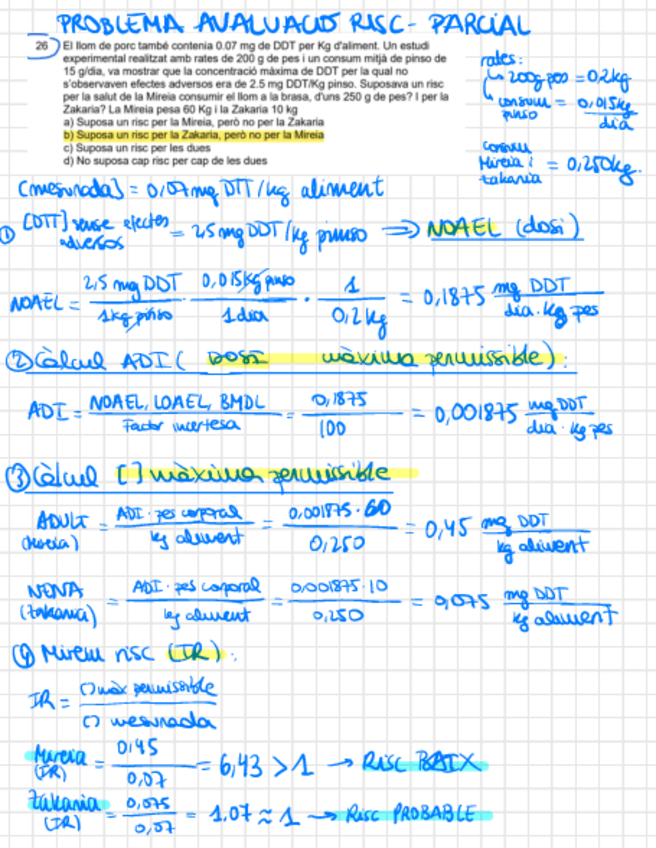 PROBLEMA AVALUACIÓ RISC - PARCIAL
26 El llom de porc també contenia 0.07 mg de DDT per Kg d'aliment. Un estudi
experimental realitzat amb rates de 200 g de pes i un consum mitjà de pinso de
15 g/dia, va mostrar que la concentració màxima de DDT per la qual no
s'observaven efectes adversos era de 2.5 mg DDT/Kg pinso. Suposava un risc
per la salut de la Mireia consumir el llom a la brasa, d'uns 250 g de pes? I per la
Zakaria? La Mireia pesa 60 Kg i la Zakaria 10 kg
a) Suposa un risc per la Mireia, però no per la Zakaria
b) Suposa un risc per la Zakaria, però no per la Mireia
c) Suposa un risc per les dues
d) No suposa cap risc per cap de les dues
rates:
↳ 200g pes = 0,2kg
↳ consum pinso = 0,015kg / dia
consum Mireia i Zakaria = 0,250kg.
[mesurada] = 0,07 mg DTT/kg aliment
① [DTT] sense efectes adversos = 2,5 mg DDT/kg pinso ⟹ NOAEL (dosi)
NOAEL = 2,5 mg DDT / 1kg pinso · 0,015kg pinso / 1 dia · 1 / 0,2kg = 0,1875 mg DDT / dia · kg pes
② Càlcul ADI ( DOSI màxima permissible):
ADI = NOAEL, LOAEL, BMDL / Factor incertesa = 0,1875 / 100 = 0,001875 mg DDT / dia · kg pes
③ Càlcul [ ] màxima permissible
ADULT (Mireia) = ADI · pes corporal / kg aliment = 0,001875 · 60 / 0,250 = 0,45 mg DDT / kg aliment
NENA (Zakaria) = ADI · pes corporal / kg aliment = 0,001875 · 10 / 0,250 = 0,075 mg DDT / kg aliment
④ Mirem risc (IR):
IR = [] màx permissible / [] mesurada
Mireia (IR) = 0,45 / 0,07 = 6,43 > 1 → RISC BAIX
Zakaria (IR) = 0,075 / 0,07 = 1,07 ≈ 1 → RISC PROBABLE